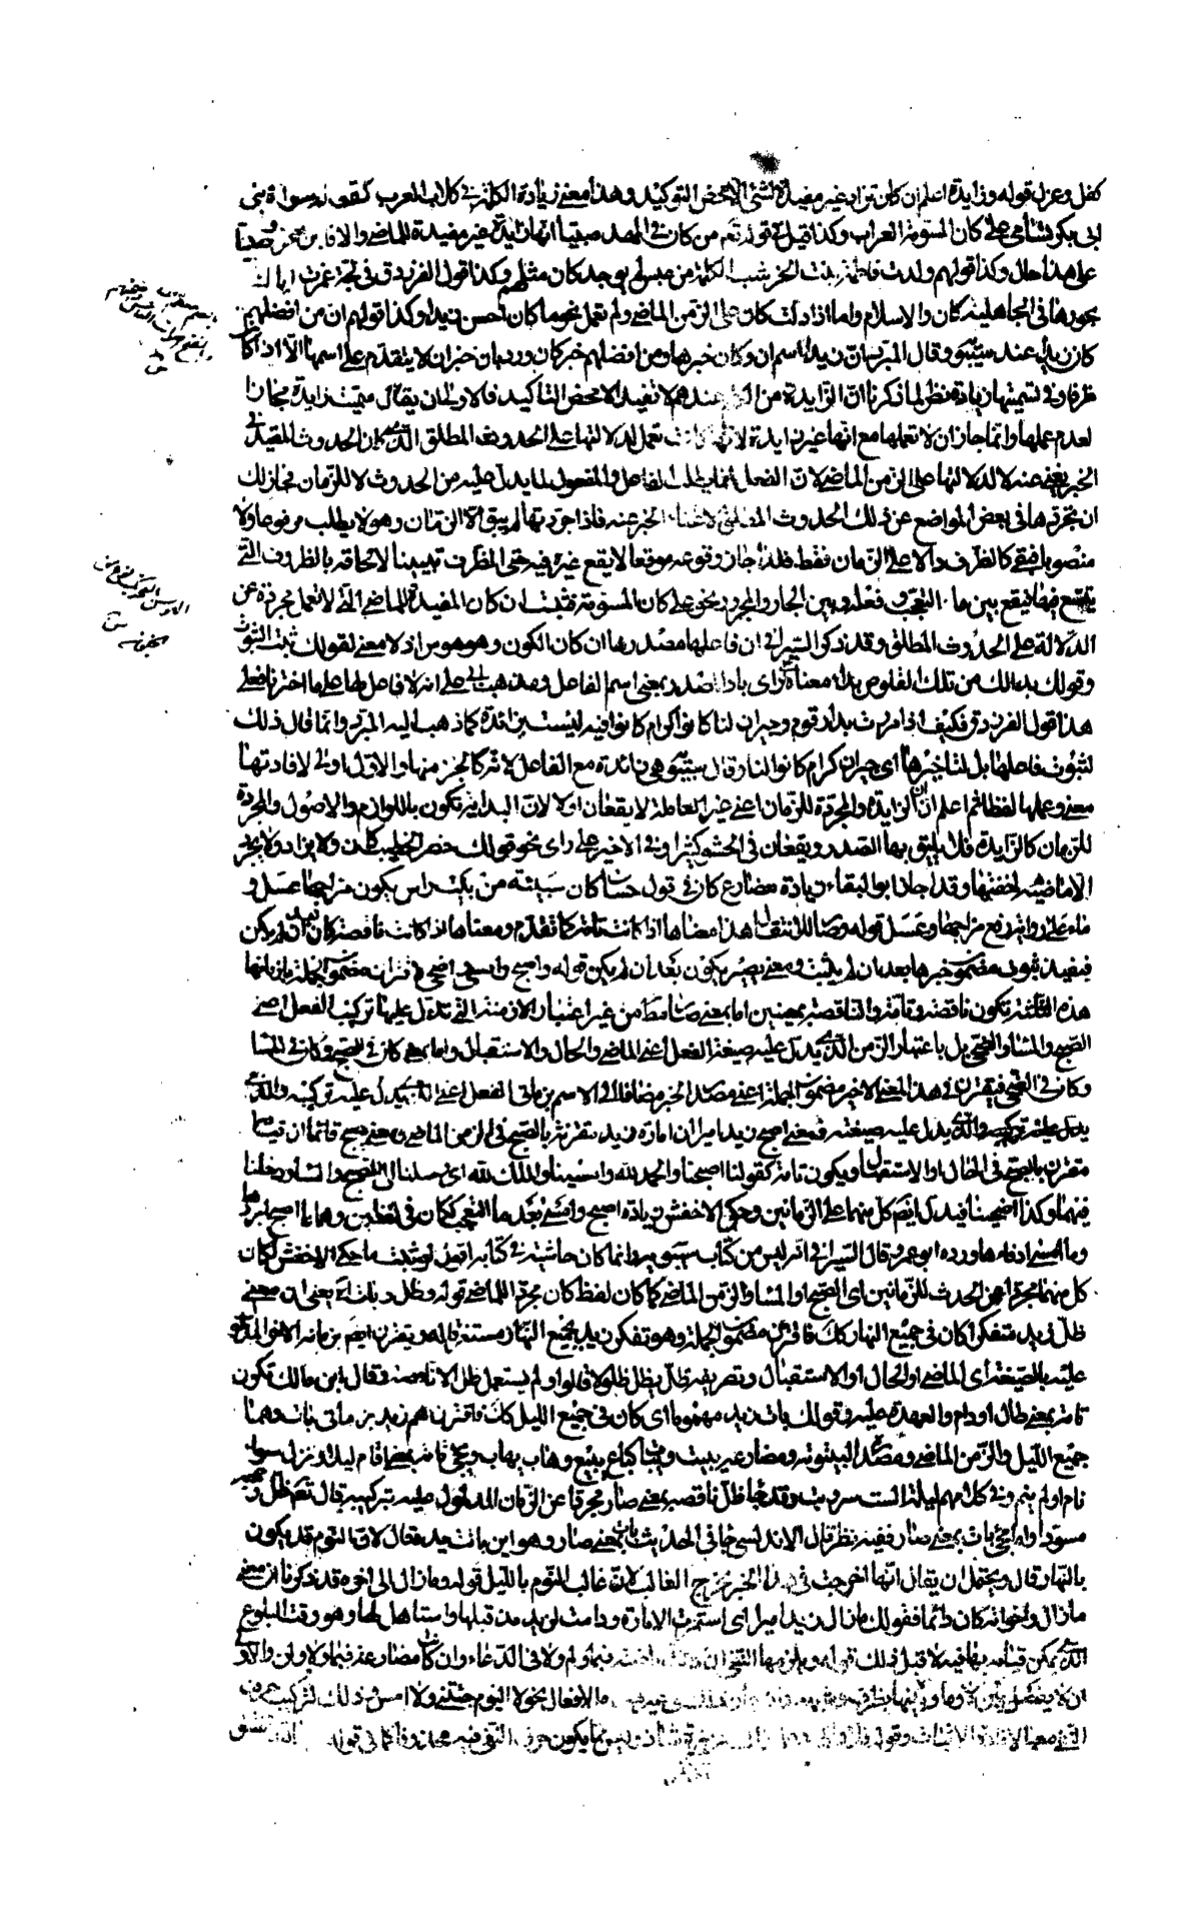 كفل وعزل قوله وزايدة اعلم ان كان تزاد غير مفيدة لشئ الا محض التوكيد وهذا معنى زيادة الكلمة في كلام العرب كقوله سراة بنى
ابى بكر تسامى على كان المسومة العراب وكذا قيل في قوله تعم من كان في المهد صبيا انها زيدة غير مفيدة للماضى والا فاين
على هذا حال وكذا قولهم ولدت فاطمة بنت الخرشب الكملة من عبس لم يوجد كان مثلهم وكذا قول الفرزدق في لجة غمرت اباك
بحورها في الجاهلية كان والاسلام واما اذا دلت كان على الزمن الماضى ولم تعمل نحو ما كان احسن زيدا وكذا قولهم ان من افضلهم
كان زيدا عند سيبويه وقال المبرد ان زيدا اسم ان وكان خبرها ومن افضلهم خبر كان ورد بان خبر ان لا يتقدم على اسمها الا اذا كان
ظرفا وفي تسميتها زيادة نظر لما ذكرنا ان الزايدة من الكلم عندهم لا تفيد الا محض التأكيد فالاولى ان يقال سميت زايدة مجازا
لعدم عملها وانما جاز ان لا تعملها مع انها غير زايدة لانها كانت تعمل لدلالتها على الحدوث المطلق الذى كان الحدوث المقيد في
الخبر يغنى عنه لا لدلالتها على الزمن الماضى لان الفعل انما يطلب الفاعل والمفعول لما يدل عليه من الحدوث لا للزمان فجاز لك
ان تجردها في بعض المواضع عن ذلك الحدوث المطلق لاغناء الخبر عنه فاذا جردتها لم يبق الا الزمان وهو لا يطلب مرفوعا ولا
منصوبا فبقى كالظرف دالا على الزمان فقط فلذا جاز وقوعه موقعا لا يقع غيره فيه حتى الظرف تبيينا لالحاقه بالظروف التى
يتسع فيها فيقع بين ما التعجب وفعله وبين الجار والمجرور نحو على كان المسومة فثبت ان كان المفيدة للماضى التى لا تعمل مجردة عن
الدلالة على الحدوث المطلق وقد ذكر السيرافى ان فاعلها مصدرها اى كان الكون وهو هوس اذ لا معنى لقولك ثبت الثبوت
وقولك بدا لك من تلك القلوص بداء معناه راى باد المصدر بمعنى اسم الفاعل ومذهب ابى على انه لا فاعل لها على ما اخترنا فعلى
هذا قول الفرزدق فكيف اذا مررت بدار قوم وجيران لنا كانوا كرام كانوا فيه ليست بزائدة كما ذهب اليه المبرد وانما قال ذلك
لثبوت فاعلها بل لنا خبرها اى جيران كرام كانوا لنا وقال سيبويه هى زائدة مع الفاعل لانه كالجزء منها والاول اولى لافادتها
معنى وعملها لفظا ثم اعلم ان الزايدة والمجردة للزمان اعنى غير العاملة لا يقعان اولا لان البداية تكون باللوازم والاصول والمجردة
للزمان كالزايدة فلا يليق بها الصدر ويقعان في الحشو كثيرا وفي الاخير على راى نحو قولك حضر الخطيب كان ولا يزاد ولا يجرد
الا ماضية لخفتها وقد اجاز ابو البقاء زيادة مضارع كان في قول حسان كان سبيئة من بيت راس يكون مزاجها عسل و
ماء على رواية رفع مزاجها وعسل قوله وصار للانتقال هذا معناها اذا كانت تامة كما تقدم ومعناها اذا كانت ناقصة كان بعد ان لم يكن
فيفيد ثبوت مضمون خبرها بعد ان لم يثبت ومعنى يصير يكون بعد ان لم يكن قوله واصبح وامسى واضحى لاقتران مضمون الجملة بازمانها
هذه الثلثة تكون ناقصة وتامة والناقصة بمعنيين اما بمعنى صار مطلقا من غير اعتبار الازمنة التى تدل عليها تركيب الفعل اعنى
الصبح والمساء والضحى بل باعتبار الزمن الذى يدل عليه صيغة الفعل اعنى الماضى والحال والاستقبال واما بمعنى كان في الصبح وكان في المساء
وكان في الضحى فيقترن في هذا المعنى الاخير مضمون الجملة اعنى مصدر الخبر مضافا الى الاسم بزمانى الفعل اعنى الذى يدل عليه تركيبه والذى
يدل عليه صيغته فمعنى اصبح زيد اميرا ان امارة زيد مقترنة بالصبح في الزمن الماضى ومعنى يصبح قائما ان قيامه
مقترن بالصبح في الحال او الاستقبال ويكون تامة كقولنا اصبحنا والحمد لله وامسينا والملك لله اى وصلنا الى الصبح والمساء ودخلنا
فيهما وكذا اضحينا فيدل ايضا كل منهما على الزمانين وحكى الاخفش زيادة اصبح وامسى بعد ما التعجب ككان في لفظين وهما ما اصبح ابردها
وما امسى ادفاها ورده ابو عمرو وقال السيرافى انه ليس من كتاب سيبويه وانما كان حاشية في كتابه اقول لو ثبت ما حكى الاخفش لكان
كل منهما مجردا عن الحدث للزمانين اى الصبح او المساء والزمن الماضى كما كان لفظ كان مجردا للماضى قوله وظل وبات لهـ يعنى ان معنى
ظل زيد متفكرا كان في جميع النهار كذلك فاقترن مضمون الجملة وهو تفكر زيد بجميع النهار مستغرقا له ويقترن ايضا بزمانه الاخر المدلول
عليه بالصيغة اى الماضى او الحال او الاستقبال وتصريفه ظل يظل ظلولا قالوا ولم يستعمل ظل الا ناقصة وقال ابن مالك تكون
تامة بمعنى طال او دام والعهدة عليه وقولك بات زيد مهموما اى كان في جميع الليل كذلك فاقترن هم زيد بزمانى بات وهما
جميع الليل والزمن الماضى ومصدره البيتوتة ومضارعه يبيت ويبات كباع يبيع وهاب يهاب ويجئ تامة بمعنى اقام ليلا ونزل سواء
نام او لم ينم وفي كلامهم ليلة السبت سر وبت وقد جاء ظل ناقصة بمعنى صار مجردا عن الزمان المدلول عليه بتركيبه قال تعم ظل وجهه
مسودا واما مجئ بات بمعنى صار ففيه نظر قال الاندلسى جاء في الحديث بات بمعنى صار وهو اين باتت يده فقال لان النوم قد يكون
بالنهار قال ويحتمل ان يقال انها اخرجت في هذا الخبر مخرج الغالب لان غالب النوم بالليل قوله وما زال الى اخره قد ذكرنا ان معنى
ما زال واخواته كان دائما فقولك ما زال زيد اميرا اى استمرت الامارة ودامت لزيد مذ قبلها واستاهل لها وهو وقت البلوغ
الذى يمكن قيامه بها فيه لا قبل ذلك قوله ويلزمها النفى ان فيما ولم ولا في الدعاء وان كان مضارعة فبما ولا ولن والاولى
ان لا يفصل بين لا وما وبينها بظرف الافعال نحو لا اليوم جئتنى ولا امس وذلك لتركيب حرف
النفى معها لافادة الاثبات وقوله شاذ وربما يكون حرف النفى فيه محذوفا كما في قوله